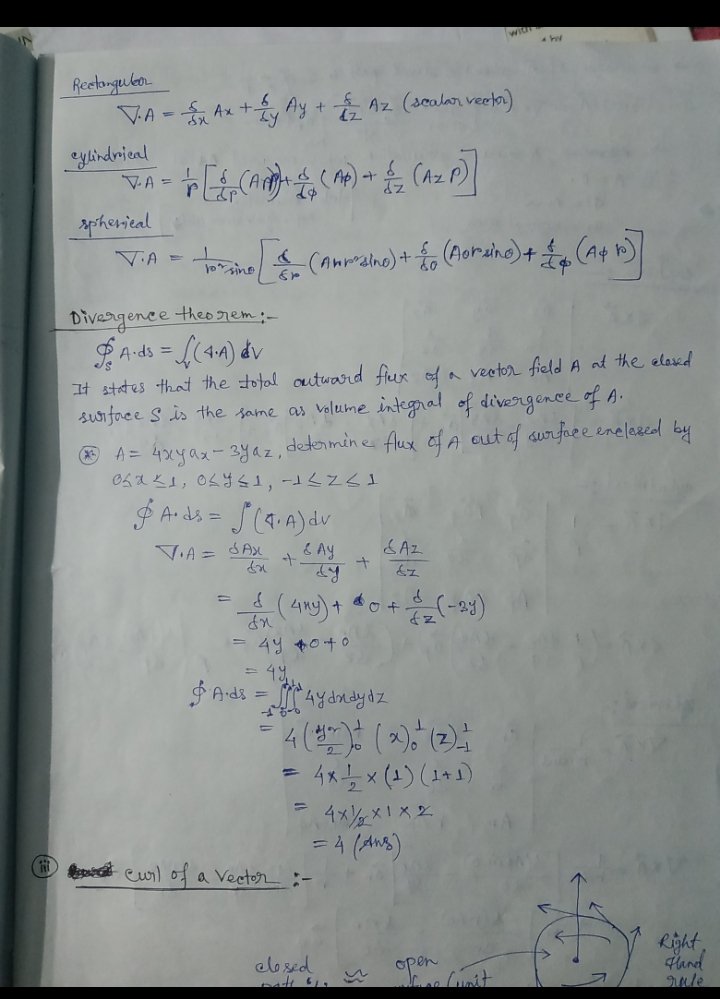 Rectangular
∇.A = δ/δx Ax + δ/δy Ay + δ/δz Az (scalar vector)
cylindrical
∇.A = 1/ρ [δ/δρ (Aρρ) + δ/dφ (Aφ) + δ/δz (Az ρ)]
spherical
∇.A = 1/r² sinθ [δ/δr (Ar r² sinθ) + δ/δθ (Aθ r sinθ) + δ/δφ (Aφ r)]
Divergence theorem :-
∮s A.ds = ∫v (∇.A) dv
It states that the total outward flux of a vector field A at the closed
surface S is the same as volume integral of divergence of A.
A = 4xy ax - 3y az, determine flux of A out of surface enclosed by
0≤x≤1, 0≤y≤1, -1≤z≤1
∮ A.ds = ∫ (∇.A) dv
∇.A = δAx/δx + δAy/δy + δAz/δz
= δ/δx (4xy) + 0 + δ/δz (-3y)
= 4y + 0 + 0
= 4y
∮ A.ds = ∫∫∫ 4y dx dy dz
= 4 (y²/2)₀¹ (x)₀¹ (z)₋₁¹
= 4 × 1/2 × (1) (1+1)
= 4 × 1/2 × 1 × 2
= 4 (Ans)
(iii) curl of a vector :-
Right
Hand
rule
closed ≈ open